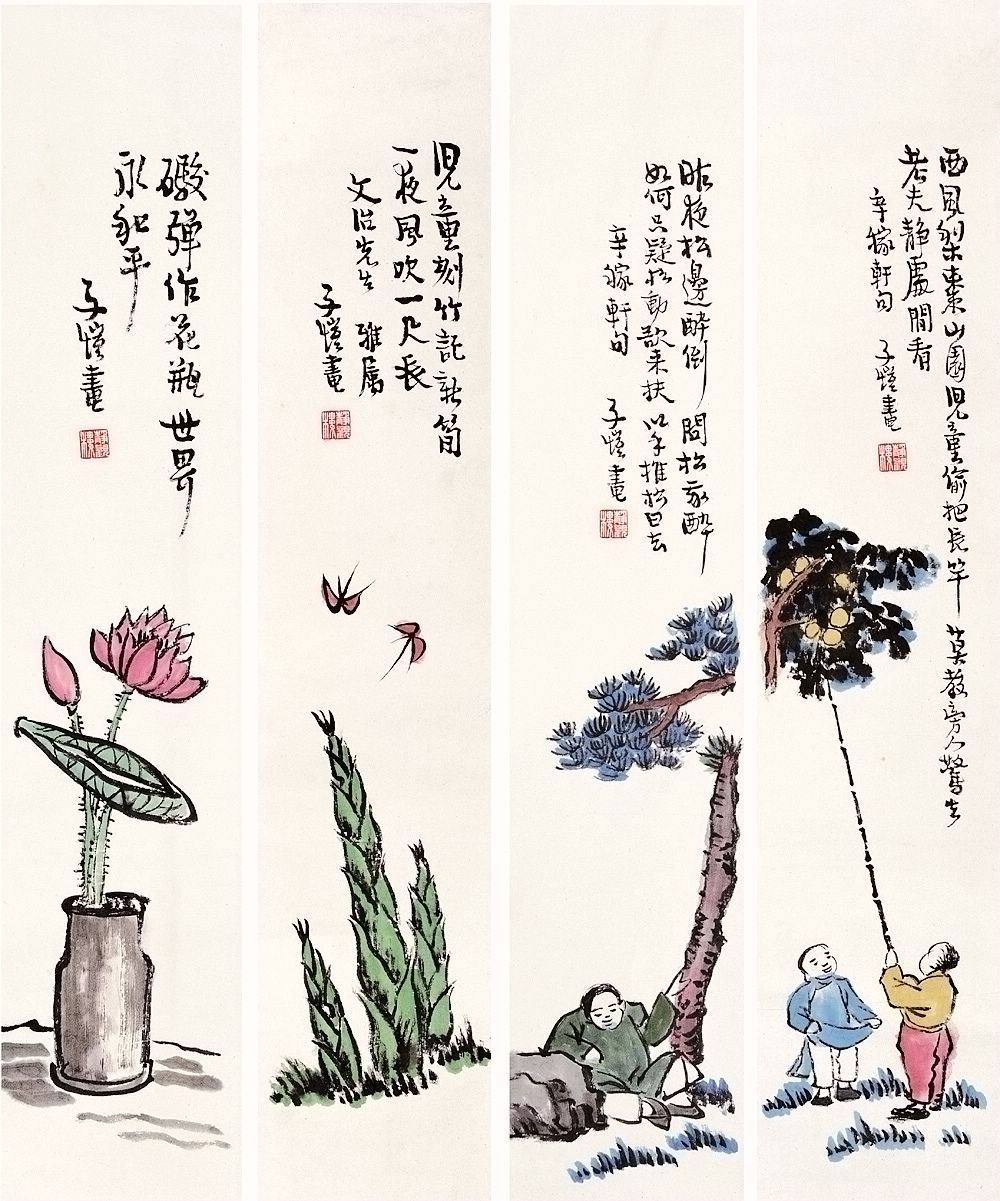 西風梨棗山園兒童偷把長竿 莫教旁人驚去
老夫靜處閒看
辛稼軒句 子愷畫
昨夜松邊醉倒 問松我醉
如何只疑松動欲来扶 以手推松曰去
辛稼軒句 子愷畫
兒童刻竹記新筍
一夜風吹一尺長
文治先生 雅属
子愷畫
礮彈作花瓶 世界
永和平
子愷畫